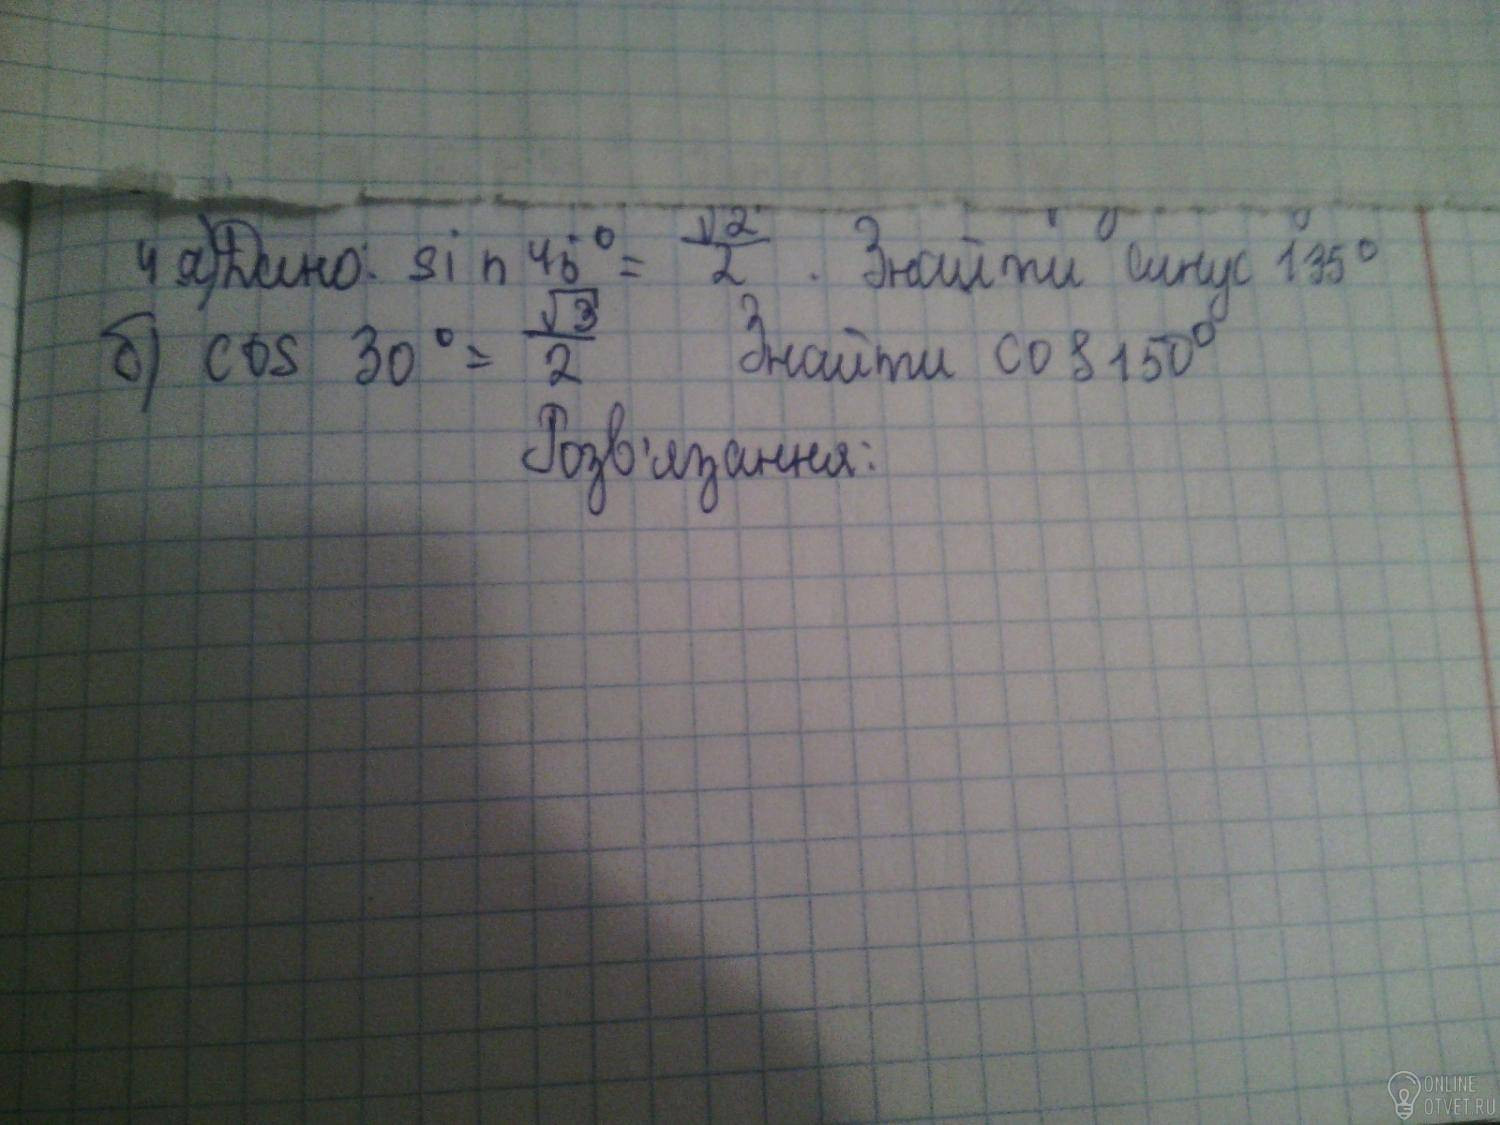 4 а) Дано: sin 45° = √2/2 . Знайти синус 135°
б) cos 30° = √3/2 Знайти cos 150°
Розв'язання:
ONLINE
OTVET.RU